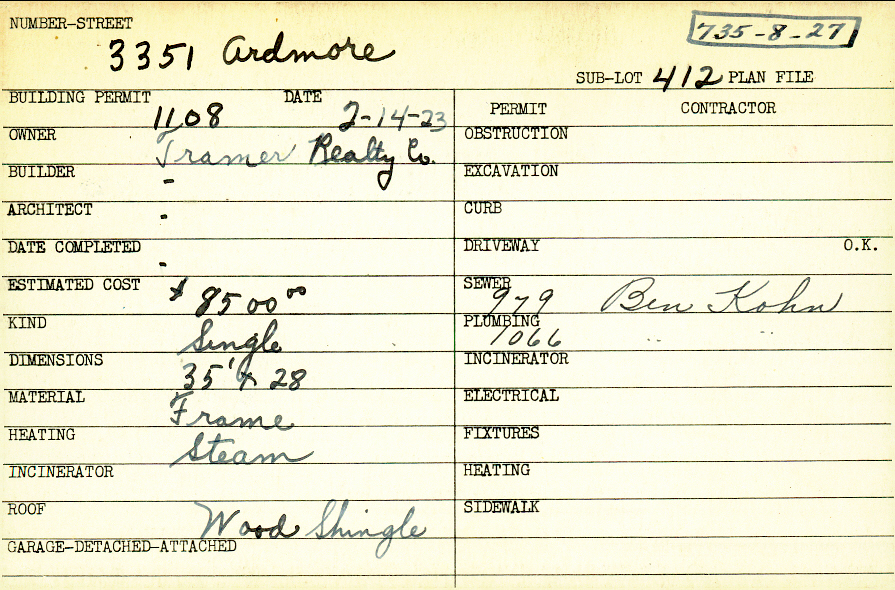 NUMBER-STREET
3351 Ardmore
735-8-27
SUB-LOT 412 PLAN FILE
BUILDING PERMIT 1108 DATE 2-14-23
OWNER Tramer Realty Co.
BUILDER -
ARCHITECT -
DATE COMPLETED -
ESTIMATED COST $8500 00
KIND Single
DIMENSIONS 35' x 28
MATERIAL Frame
HEATING Steam
INCINERATOR
ROOF Wood Shingle
GARAGE-DETACHED-ATTACHED
PERMIT CONTRACTOR
OBSTRUCTION
EXCAVATION
CURB
DRIVEWAY O.K.
SEWER 979 Ben Kohn
PLUMBING 1066 " "
INCINERATOR
ELECTRICAL
FIXTURES
HEATING
SIDEWALK